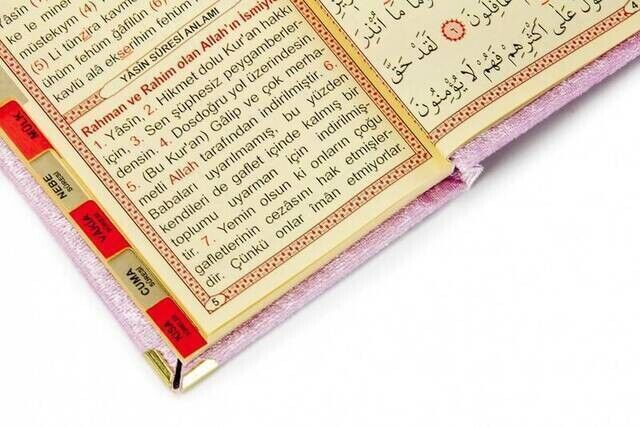 ke le minel
müstekym (4)
(5) Li tünzira kavmen
ühüm fehüm ğâfilûn (6)
kavlü alâ ekserihim fehüm
YÂSÎN SÛRESİ ANLAMI
Rahman ve Rahim olan Allah'ın İsmiyle
1. Yâsîn, 2. Hikmet dolu Kur'an hakkı
için, 3. Sen şüphesiz peygamberler-
densin. 4. Dosdoğru yol üzerindesin.
5. (Bu Kur'an) Gâlip ve çok merha-
metli Allah tarafından indirilmiştir. 6.
Babaları uyarılmamış, bu yüzden
kendileri de gaflet içinde kalmış bir
toplumu uyarman için indirilmiş-
tir. 7. Yemin olsun ki onların çoğu
gafletlerinin cezasını hak etmişler-
dir. Çünkü onlar îman etmiyorlar.
5
مَا أُنْذِرَ
غَافِلُونَ ﴿٦﴾ لَقَدْ حَقَّ
الْقَوْلُ عَلَى أَكْثَرِهِمْ فَهُمْ لَا يُؤْمِنُونَ
MÜLK
NEBE
SÛRESİ
VÂKIA
SÛRESİ
CUMA
SÛRESİ
KISA
SÛRELER